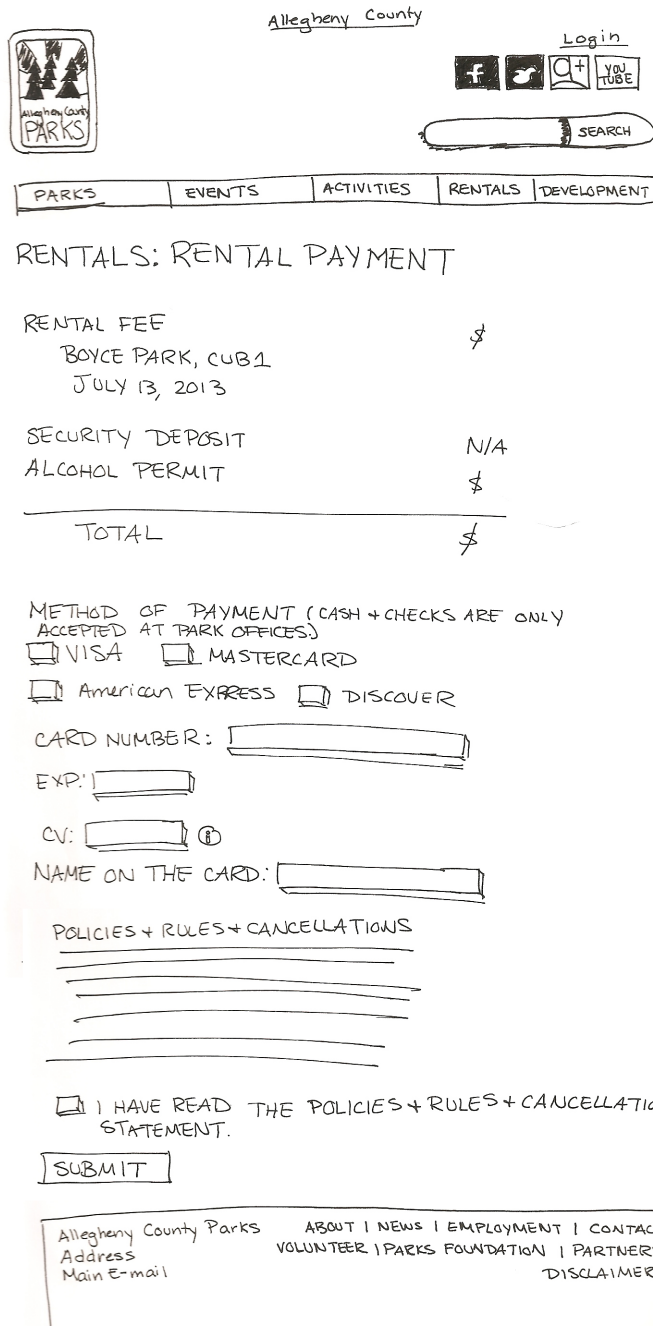 Allegheny County
Login
Allegheny County
PARKS
f
g+
YOU
TUBE
SEARCH
PARKS
EVENTS
ACTIVITIES
RENTALS
DEVELOPMENT
RENTALS: RENTAL PAYMENT
RENTAL FEE $
BOYCE PARK, CUB1
JULY 13, 2013
SECURITY DEPOSIT N/A
ALCOHOL PERMIT $
TOTAL $
METHOD OF PAYMENT (CASH + CHECKS ARE ONLY
ACCEPTED AT PARK OFFICES.)
VISA MASTERCARD
American EXPRESS DISCOVER
CARD NUMBER:
EXP:
CV: i
NAME ON THE CARD:
POLICIES + RULES + CANCELLATIONS
I HAVE READ THE POLICIES + RULES + CANCELLATIO
STATEMENT.
SUBMIT
Allegheny County Parks ABOUT | NEWS | EMPLOYMENT | CONTAC
Address VOLUNTEER | PARKS FOUNDATION | PARTNER
Main E-mail DISCLAIMER